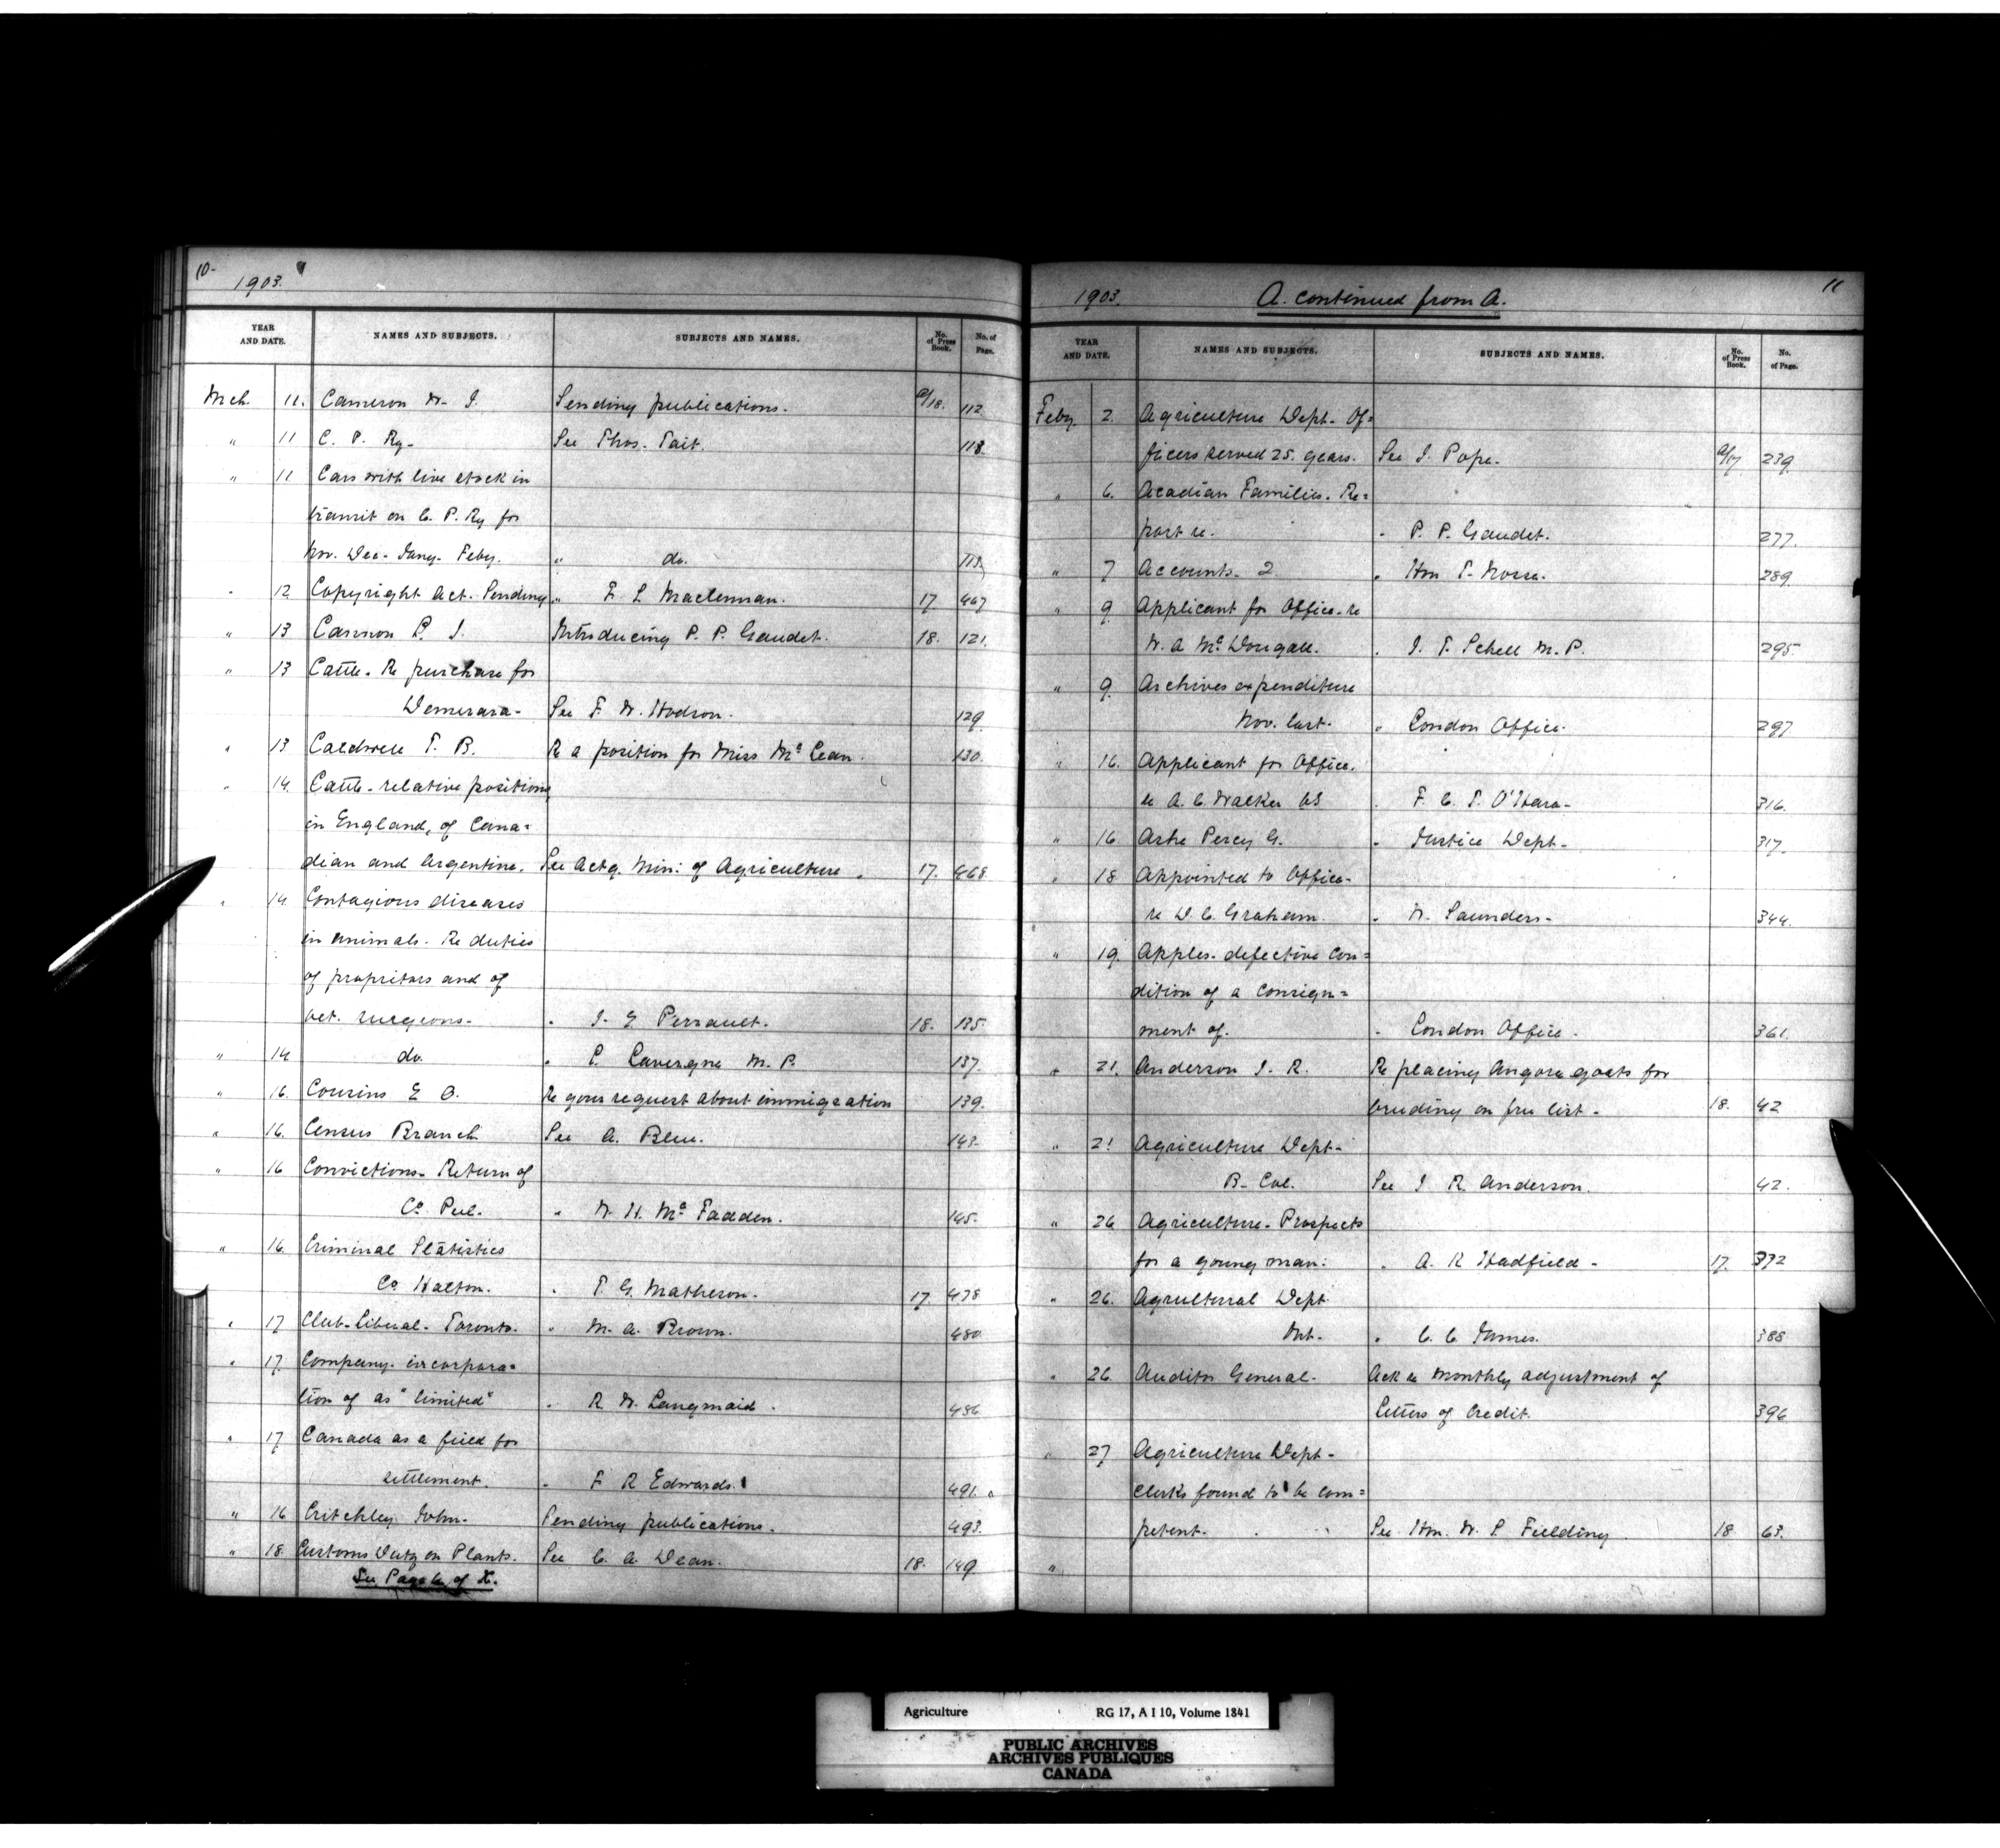 10-
1903.
YEAR AND DATE. NAMES AND SUBJECTS. SUBJECTS AND NAMES. No. of Press Book. No. of Page.
Mch. 11. Cameron W. J. Sending publications. 18. 112
" 11 C. P. Ry- See Thos. Tait. 113.
" 11 Cars with live stock in
transit on C. P. Ry for
Nov. Dec- Jany- Feby. " do. 113.
" 12 Copyright Act. Sending " F L Maclennan. 17 467
" 13 Cannon L. J. Introducing P. P. Gaudet. 18. 121.
" 13 Cattle. Re purchase for
Demerara- See F. W. Hodson. 129
" 13 Caldwell T. B. Re a position for Miss McLean. 130.
" 14. Cattle- relative positions
in England, of Cana=
dian and Argentine. See Actg. Min: of Agriculture. 17. 468
" 14. Contagious diseases
in animals. Re duties
of propritors and of
vet. surgeons- " J. E Perrault. 18. 135.
" 14 do. " L Lavergne M. P. 137.
" 16. Cousins E O. Re your request about immigration 139.
" 16. Census Branch See A. Blue. 143-
" 16 Convictions- Return of
Co Peel. " W. H. McFadden. 145-
" 16. Criminal Statistics
Co Halton. " T. G. Matheson. 17. 478
" 17 Club- Liberal- Toronto. " M. A. Brown. 480
" 17. Company- incorpora=
tion of as "limited" " R W. Langmaid. 486
" 17 Canada as a field for
settlement. " F R Edwards. 491.
" 16 Critchley John- Sending publications. 493.
" 18. Customs Duty on Plants. See C. A. Dean. 18. 149
See Page 6 of
11
1903. A. continued from A.
YEAR AND DATE. NAMES AND SUBJECTS. SUBJECTS AND NAMES. No. of Press Book. No. of Page.
Feby. 2. Agriculture Dept- Of=
ficers served 25. years. See J. Pope. 17 239.
" 6. Acadian Families. Re=
port re. " P. P. Gaudet. 277.
" 7 Accounts- 2. " Hon T- 289.
" 9 Applicant for Office- re
W. A McDougall. " J. T. Schell M. P. 295-
" 9. Archives expenditure
Nov. last- " London Office. 297
" 16. Applicant for Office.
re A. C. Walker " F. C. T. O'Hara- 316.
" 16. Ashe Percy G. " Justice Dept- 317.
" 18 Appointed to Office-
re D. C. Graham " W. Saunders- 344.
" 19. Apples- defective con=
dition of a consign=
ment of. " London Office. 361.
" 21. Anderson J. R. Re placing Angora goats for
breeding on free list- 18. 42
" 21 Agriculture Dept-
B- Col. See J R. Anderson. 42.
" 26 Agriculture- Prospects
for a young man: " A. R Hadfield- 17. 372
" 26. Agricultural Dept
Ont. " C. C. James. 388
" 26. Auditor General- Ack re monthly adjustment of
Letters of Credit. 396
" 27 Agriculture Dept-
Clerks found to be com=
petent- See Hon. W. S Fielding 18. 63.
"
Agriculture RG 17, A I 10, Volume 1841
PUBLIC ARCHIVES
ARCHIVES PUBLIQUES
CANADA